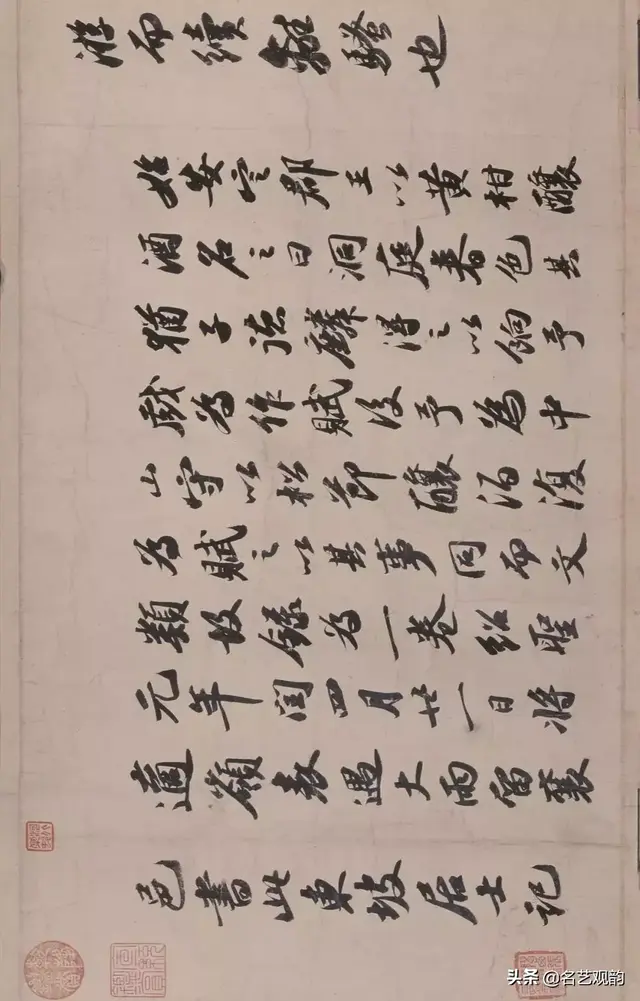 游而續離騷也
始安定郡王以黄柑釀
酒名之曰洞庭春色其
猶子德麟得之以餉予
戲為作賦後予為中
山守以松節釀酒復
為賦之以其事同而文
類故録為一卷紹聖
元年閏四月廿一日將
適嶺表遇大雨留襄
邑書此東坡居士記
头条 @名艺观韵